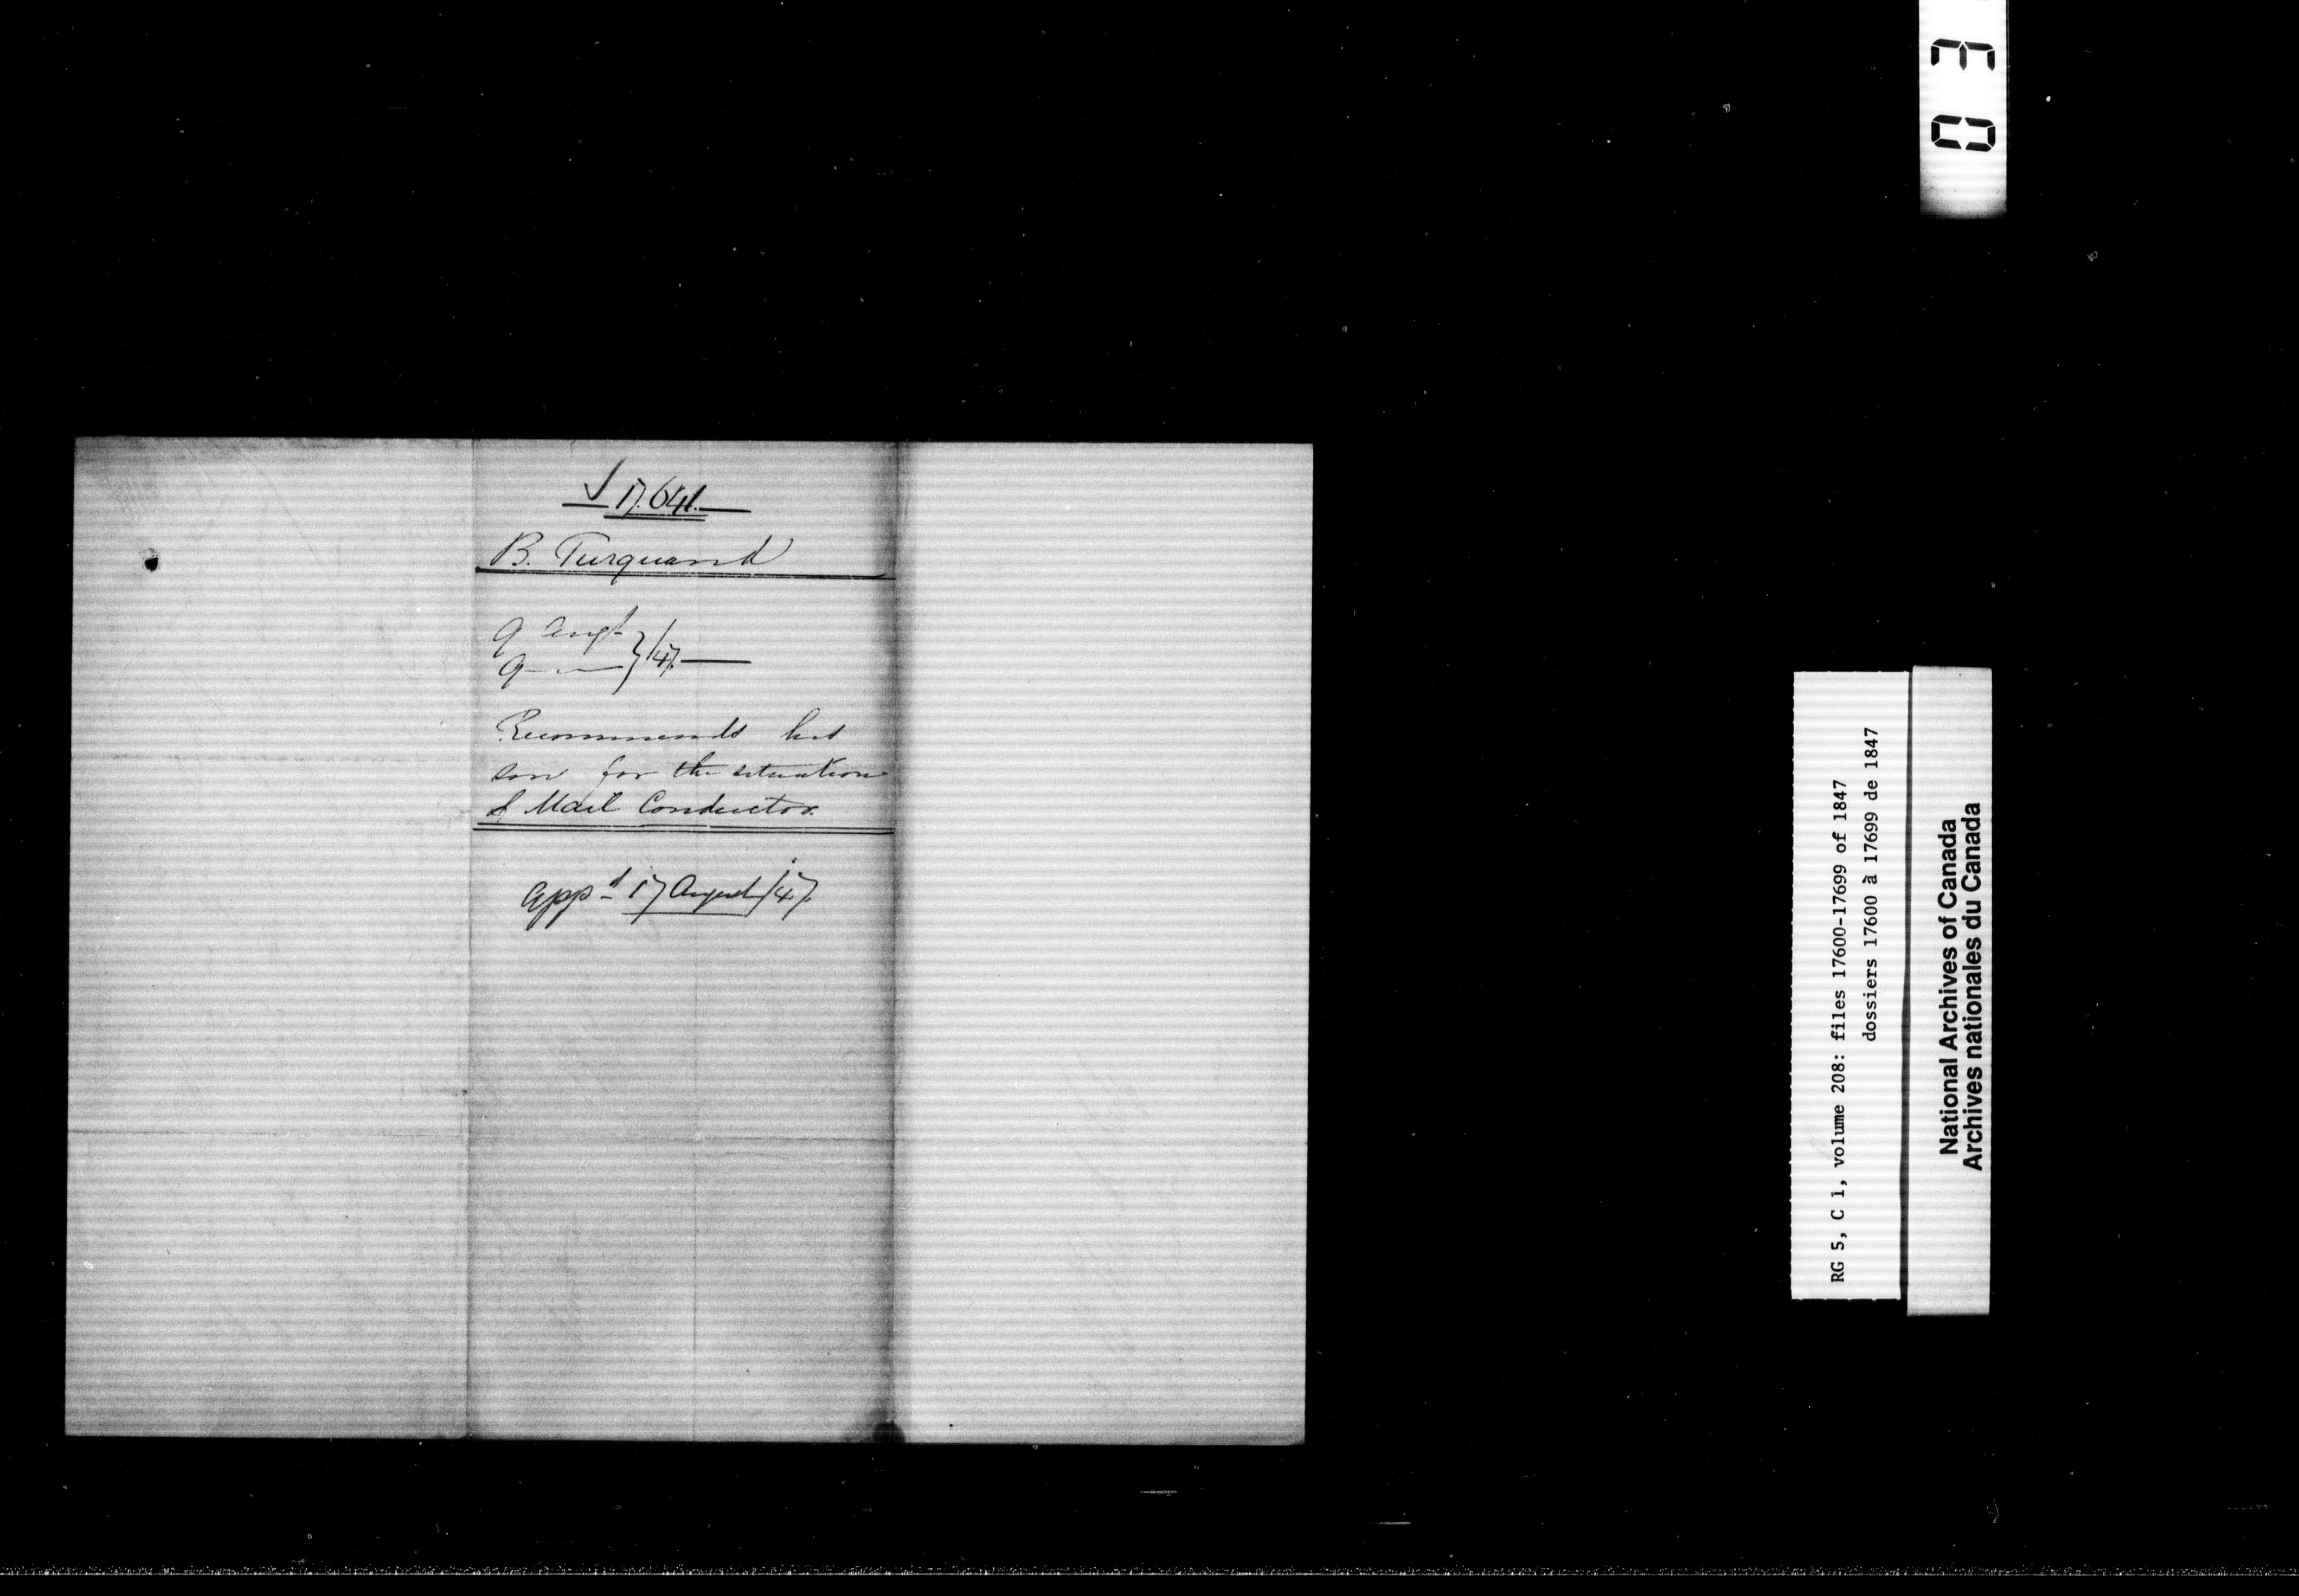 17.641.
B. Turquand
9 Augt
9 — " — } /47.
Recommends his
son for the situation
of Mail Conductor.
Appd 17 August /47.
03
RG 5, C 1, volume 208: files 17600-17699 of 1847
dossiers 17600 à 17699 de 1847
National Archives of Canada
Archives nationales du Canada